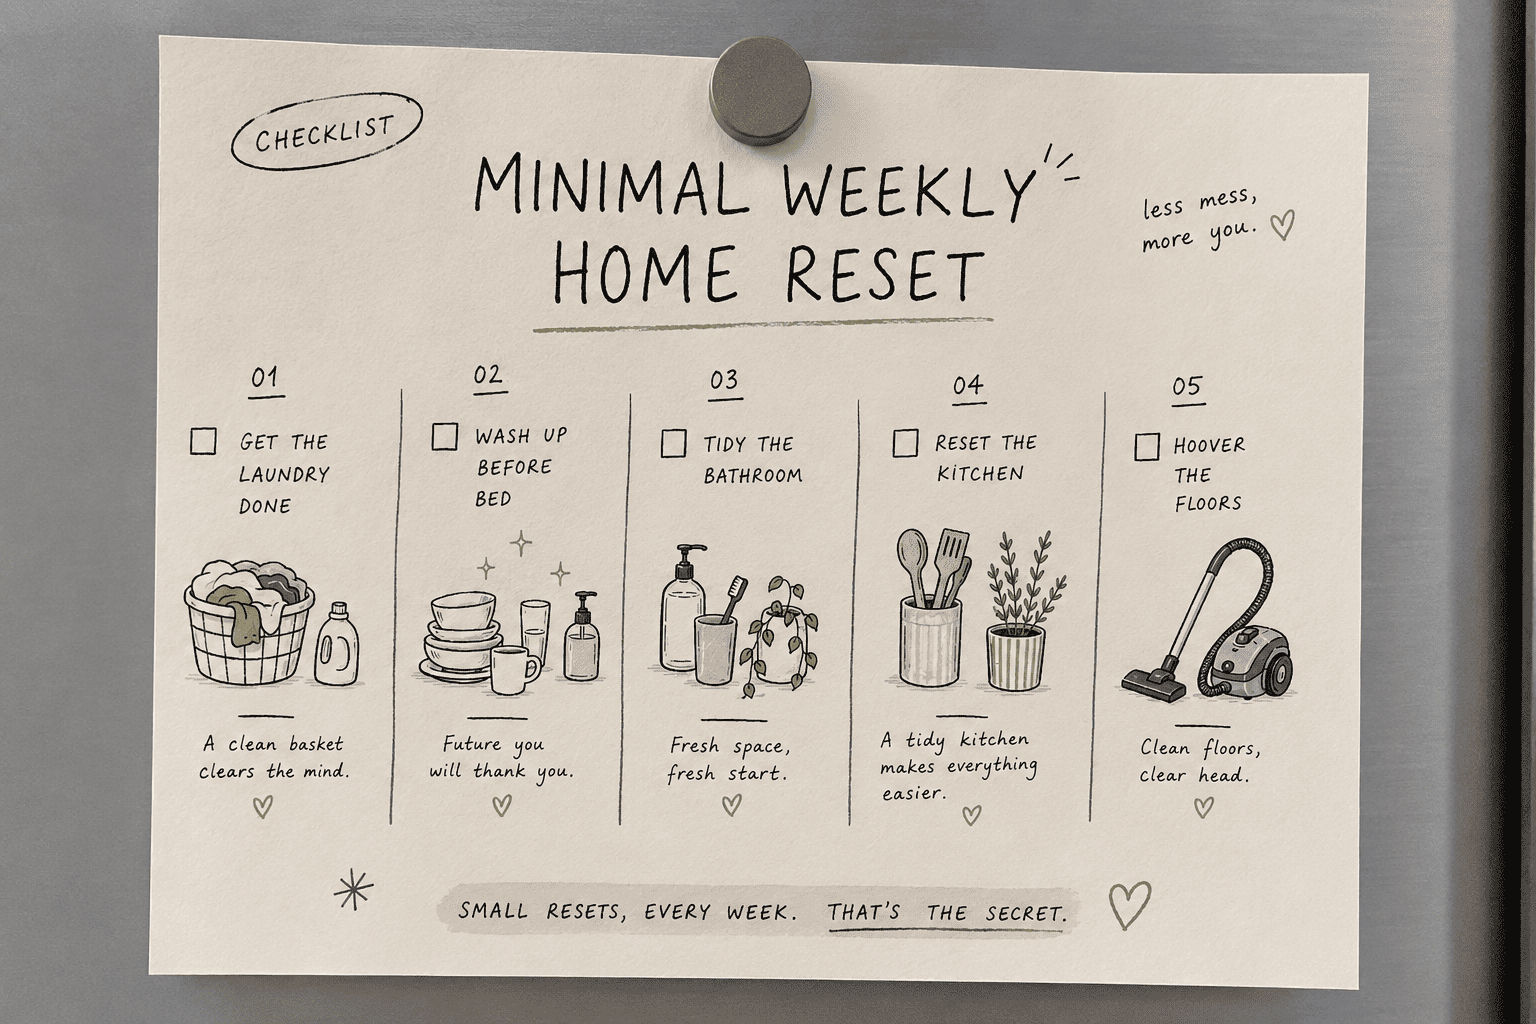 CHECKLIST
MINIMAL WEEKLY
HOME RESET
less mess,
more you.
01
GET THE
LAUNDRY
DONE
A clean basket
clears the mind.
02
WASH UP
BEFORE
BED
Future you
will thank you.
03
TIDY THE
BATHROOM
Fresh space,
fresh start.
04
RESET THE
KITCHEN
A tidy kitchen
makes everything
easier.
05
HOOVER
THE
FLOORS
Clean floors,
clear head.
SMALL RESETS, EVERY WEEK. THAT'S THE SECRET.